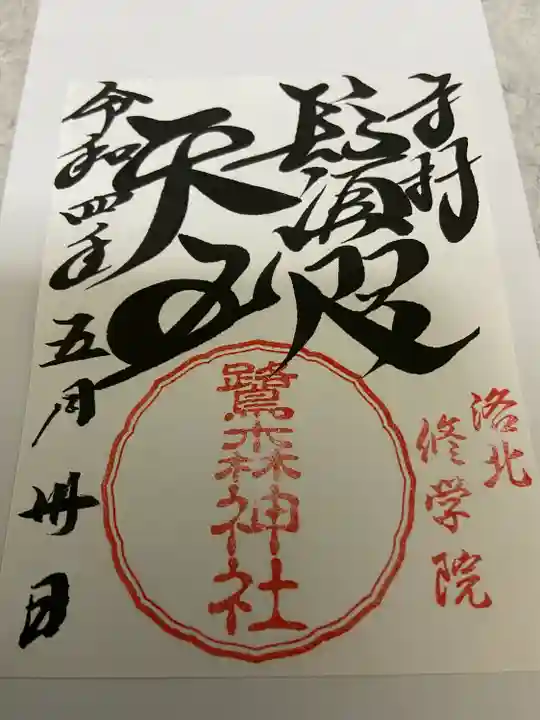 奉拝
鬚咫
天王
令和四年五月卅日
洛北
修学院
鷺森神社